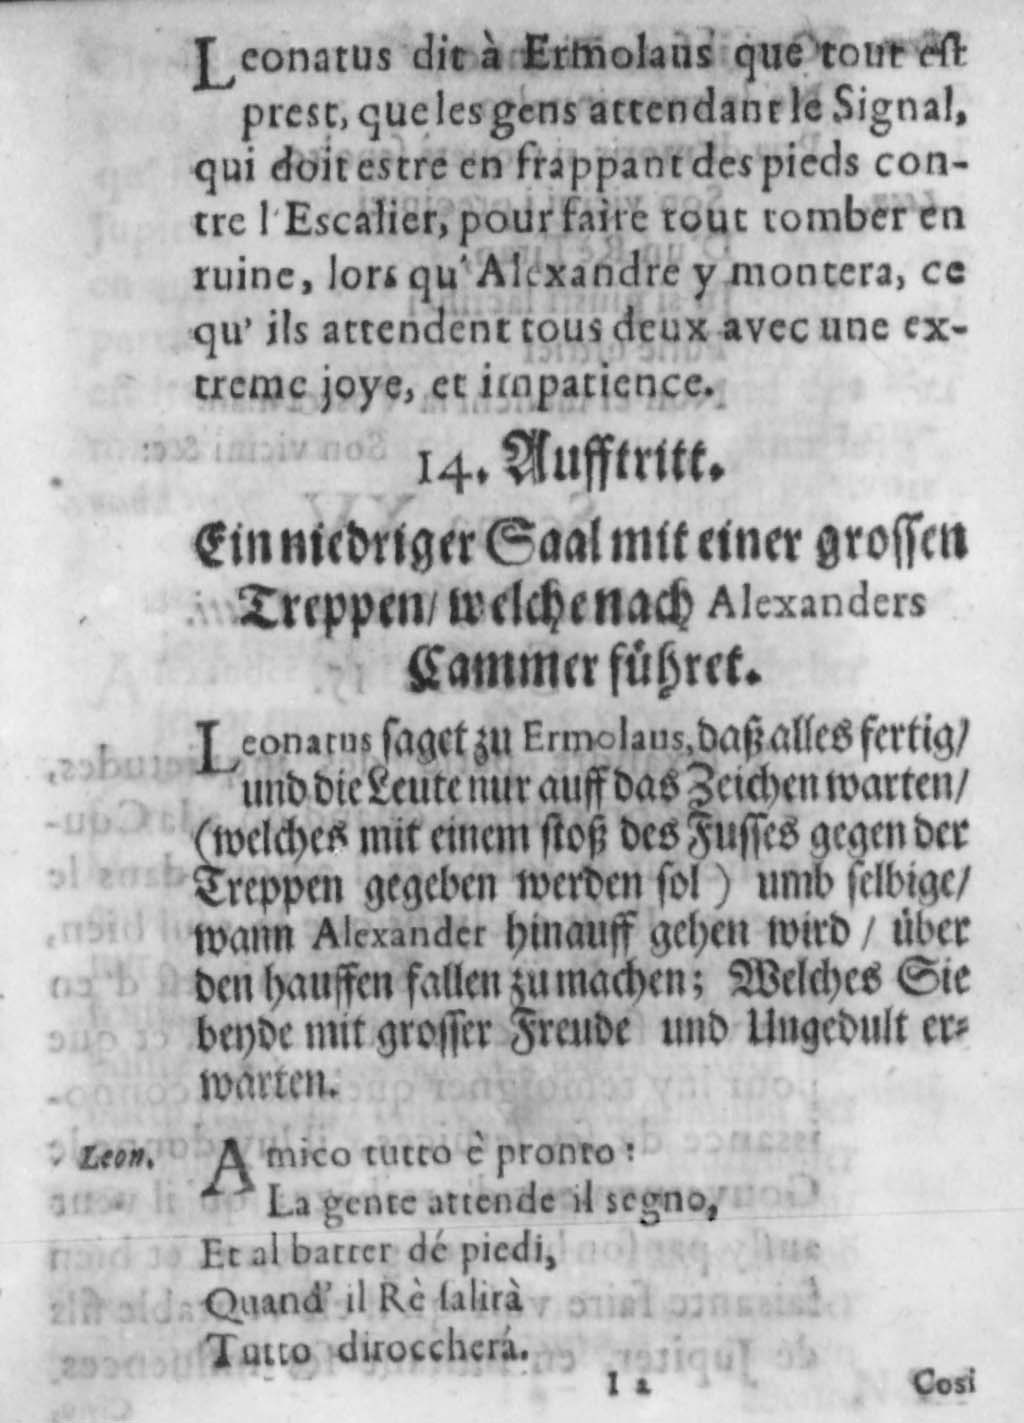 Leonatus dit à Ermolaus que tout eſt
prest, que les gens attendant le Signal,
qui doit estre en frappant des pieds con-
tre l'Escalier, pour faire tout tomber en
ruine, lors qu'Alexandre y montera, ce
qu' ils attendent tous deux avec une ex-
treme joye, et impatience.
14. Aufftritt.
Ein niedriger Saal mit einer groſſen
Treppen/ welche nach Alexanders
Cammer führet.
Leonatus ſaget zu Ermolaus, daß alles fertig/
und die Leute nur auff das Zeichen warten/
(welches mit einem ſtoß des Fuſſes gegen der
Treppen gegeben werden ſol) umb ſelbige/
wann Alexander hinauff gehen wird / über
den hauffen fallen zu machen; Welches Sie
beyde mit groſſer Freude und Ungedult er-
warten.
Leon. Amico tutto è pronto:
La gente attende il segno,
Et al batter dé piedi,
Quand' il Rè ſalirà
Tutto diroccherá.
I 2 Cosi